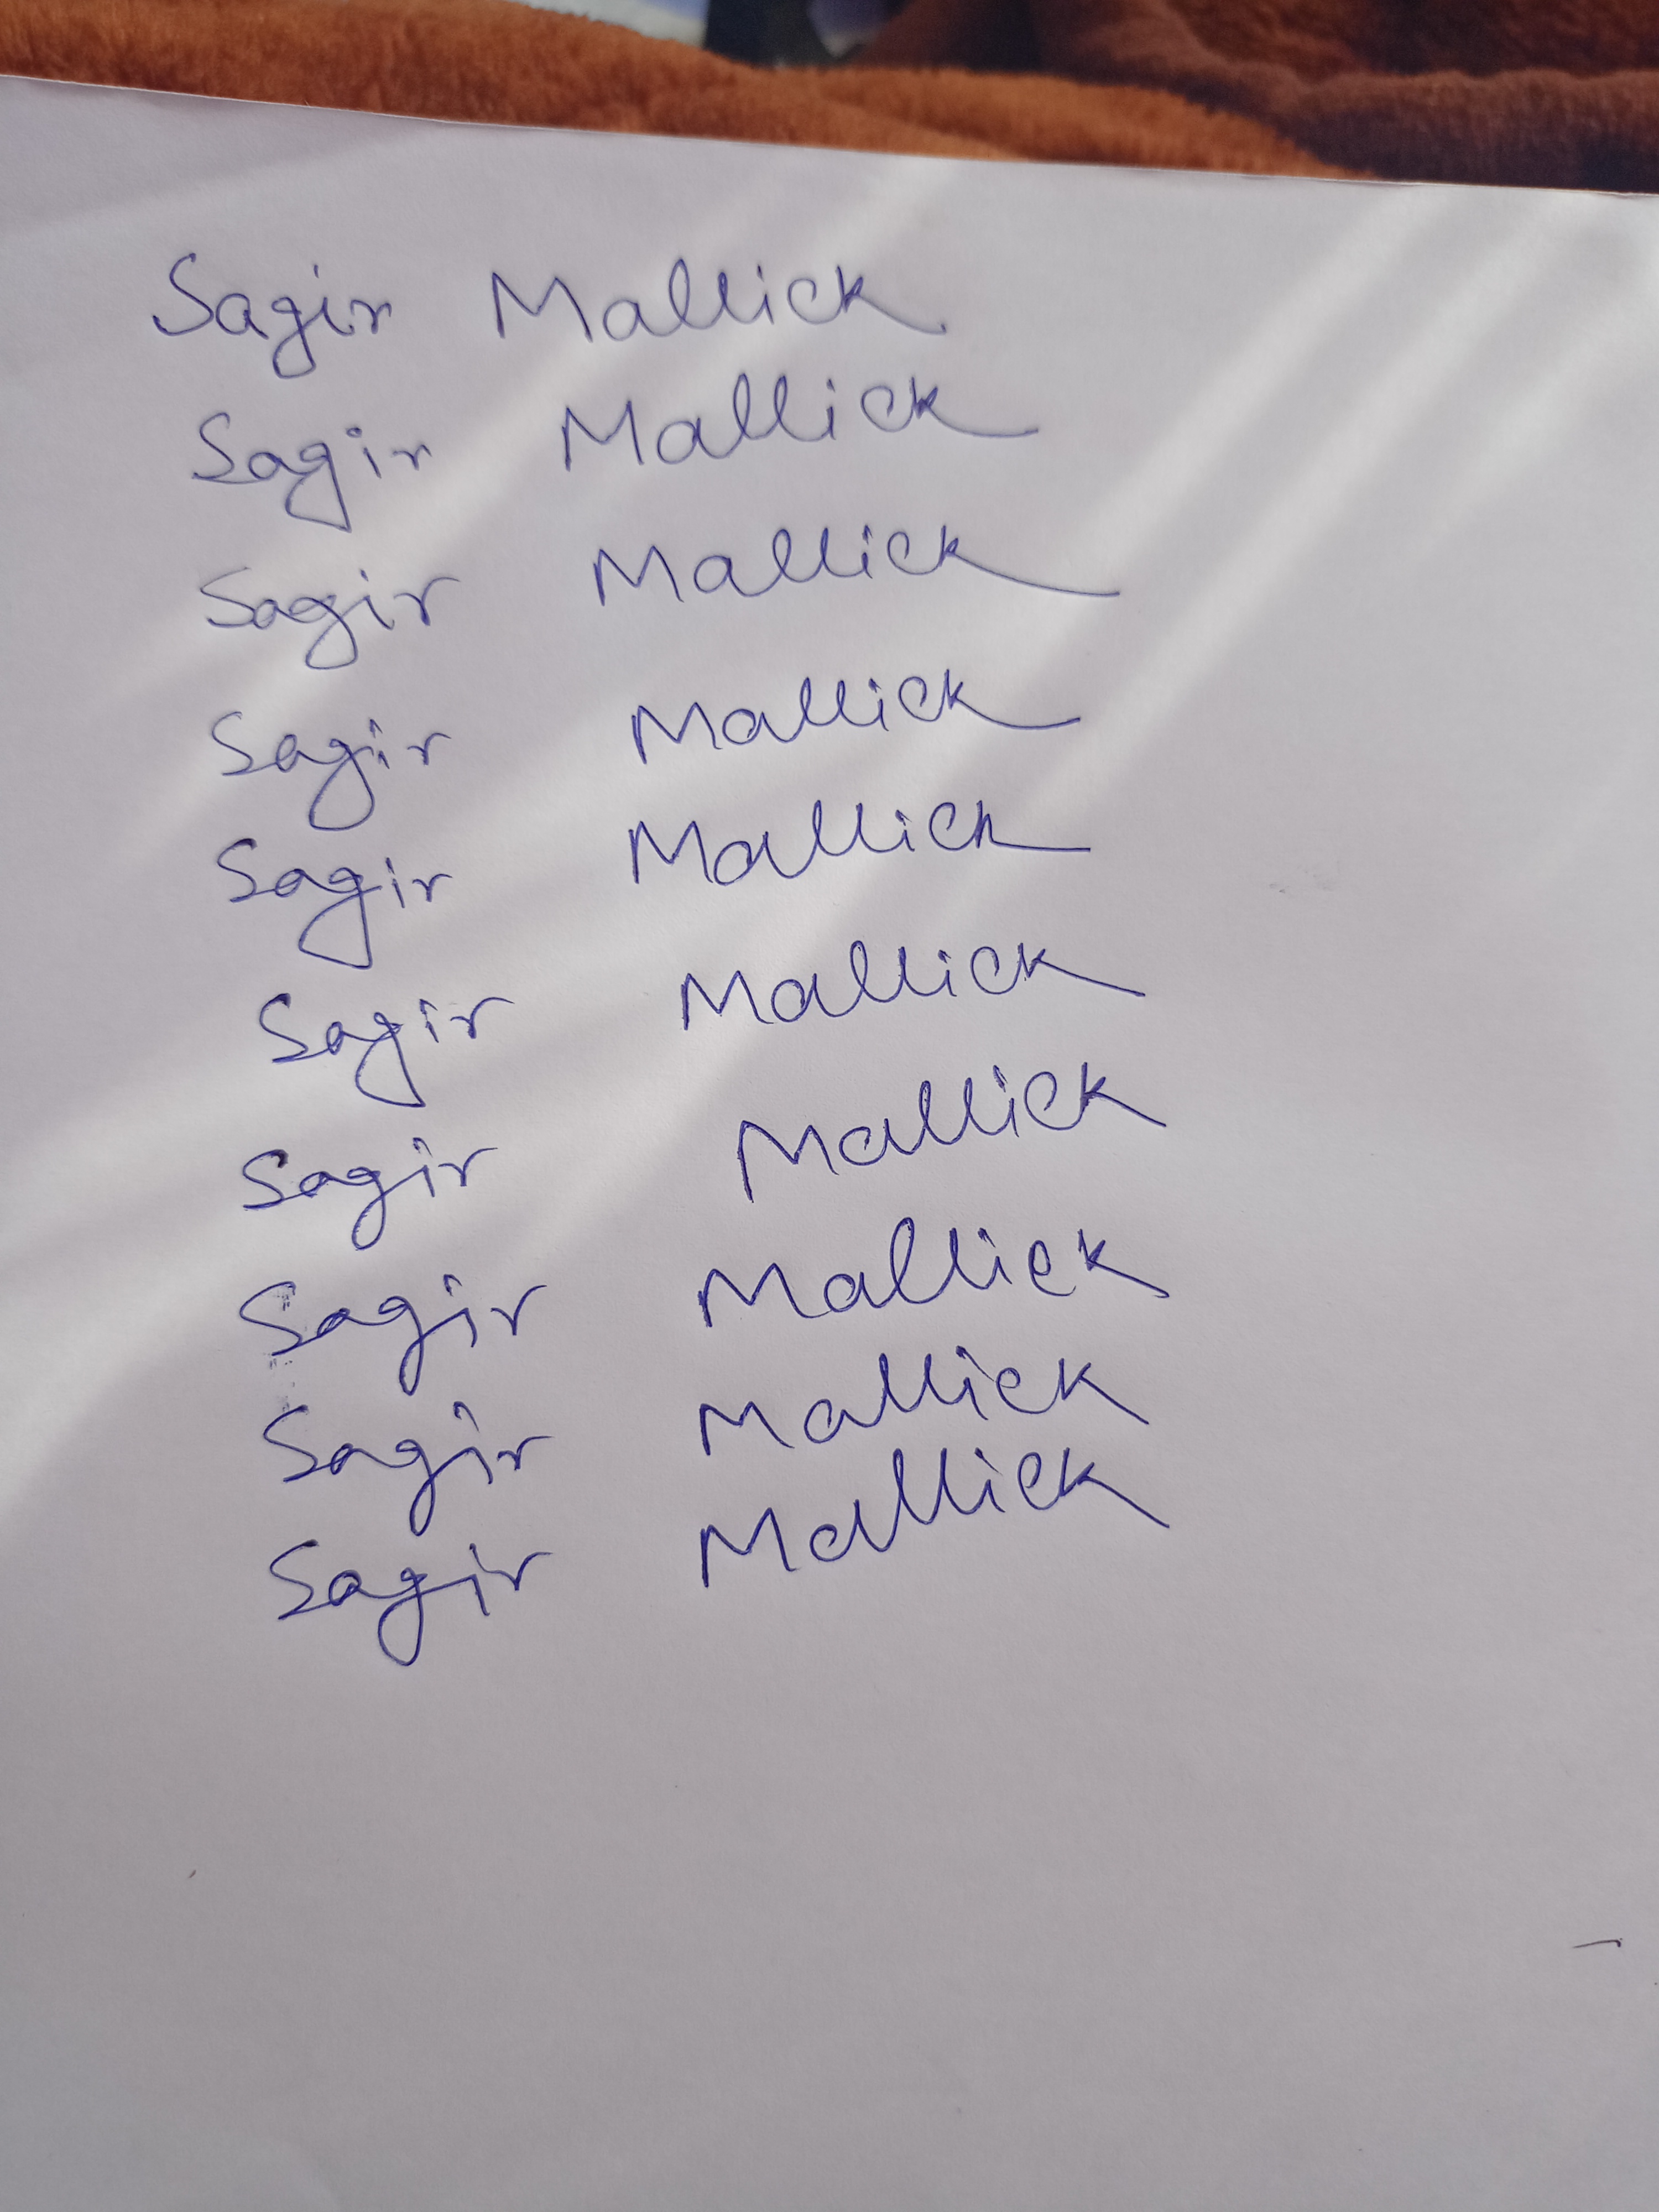 Sagir Mallick
Sagir Mallick
Sagir Mallick
Sagir Mallick
Sagir Mallick
Sagir Mallick
Sagir Mallick
Sagir Mallick
Sagir Mallick
Sagir Mallick